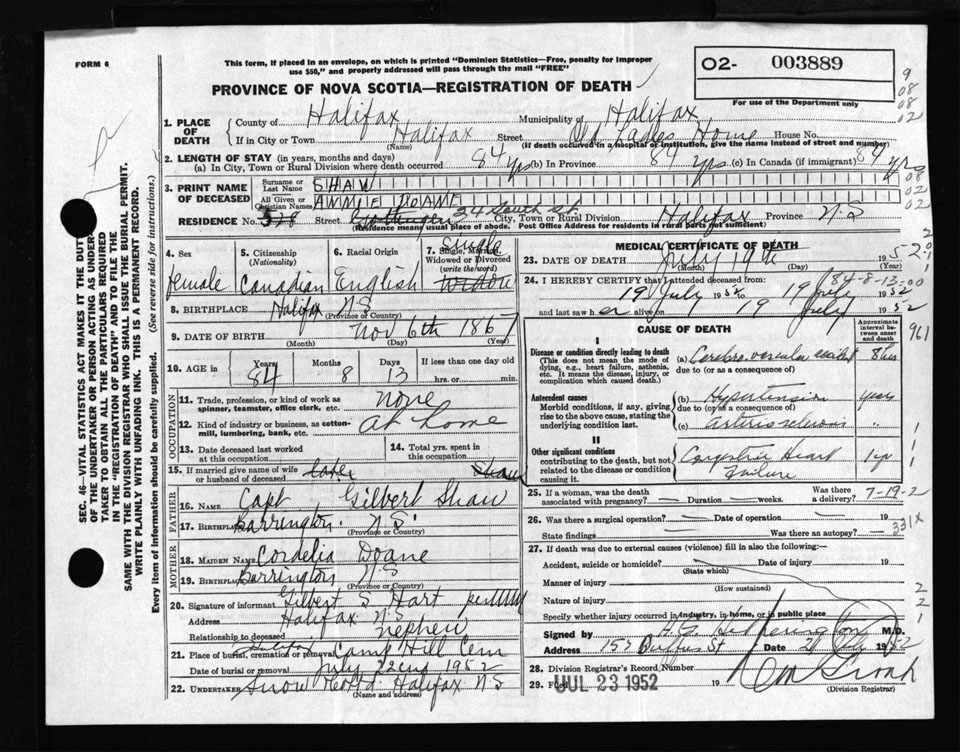 FORM 6
This form, if placed in an envelope, on which is printed "Dominion Statistics—Free, penalty for improper
use $50," and properly addressed will pass through the mail "FREE"
O2- 003889
For use of the Department only
PROVINCE OF NOVA SCOTIA—REGISTRATION OF DEATH
9
08
08
02
1. PLACE OF DEATH
County of Halifax Municipality of Halifax
If in City or Town Halifax Street Old Ladies Home House No.
(Name) (If death occurred in a hospital or institution, give the name instead of street and number)
2. LENGTH OF STAY (in years, months and days)
(a) In City, Town or Rural Division where death occurred 84 yrs (b) In Province 84 yrs (c) In Canada (if immigrant) 84 yrs
3. PRINT NAME OF DECEASED
Surname or Last Name SHAW
All Given or Christian Names ANNIE DOANE
08
02
RESIDENCE No. 578 Street Gottingen 34 South St City, Town or Rural Division Halifax Province N.S
Residence means usual place of abode. Post Office Address for residents in rural parts not sufficient)
4. Sex
female
5. Citizenship
(Nationality)
Canadian
6. Racial Origin
English
7. Single, Married, Widowed or Divorced
(write the word)
Single
Widow
8. BIRTHPLACE Halifax N.S
(Province or Country)
9. DATE OF BIRTH Nov 6th 1867
(Month) (Day) (Year)
10. AGE in
Years 84
Months 8
Days 13
If less than one day old
hrs. or min.
OCCUPATION
11. Trade, profession, or kind of work as spinner, teamster, office clerk, etc. none
12. Kind of industry or business, as cotton-mill, lumbering, bank, etc. at home
13. Date deceased last worked at this occupation
14. Total yrs. spent in this occupation
15. If married give name of wife or husband of deceased Shaw
FATHER
16. Name Capt Gilbert Shaw
17. Birthplace Barrington N.S.
(Province or Country)
MOTHER
18. Maiden Name Cordelia Doane
19. Birthplace Barrington N.S
(Province or Country)
20. Signature of informant Gilbert S Hart
Address Halifax N.S
Relationship to deceased nephew
21. Place of burial, cremation or removal Halifax Camp Hill Cem
Date of burial or removal July 22nd 1952
22. UNDERTAKER Snow Co Ltd. Halifax N.S
(Name and address)
MEDICAL CERTIFICATE OF DEATH
23. DATE OF DEATH July 19th 1952
(Month) (Day) (Year)
24. I HEREBY CERTIFY that I attended deceased from: 184-8-13-00
19 July 1952 to 19 July 1952
and last saw her alive on 19 July 1952
CAUSE OF DEATH
Approximate interval between onset and death
961
I
Disease or condition directly leading to death
(This does not mean the mode of dying, e.g., heart failure, asthenia, etc. It means the disease, injury, or complication which caused death.)
(a) Cerebro vascular accident 8 hrs
due to (or as a consequence of)
Antecedent causes
Morbid conditions, if any, giving rise to the above cause, stating the underlying condition last.
(b) Hypertension years
due to (or as a consequence of)
(c) arteriosclerosis "
II
Other significant conditions
contributing to the death, but not related to the disease or condition causing it.
Congestive Heart Failure 1 yr
1
1
25. If a woman, was the death associated with pregnancy? — Duration — weeks. Was there a delivery? 7-19-2
26. Was there a surgical operation? — Date of operation — 19
State findings Was there an autopsy? 331X
27. If death was due to external causes (violence) fill in also the following:—
Accident, suicide or homicide? Date of injury 19
(State which)
Manner of injury
(How sustained)
Nature of injury
Specify whether injury occurred in industry, in home, or in public place
2
2
1
Signed by H.S. Hetherington M.D.
Address 153 St Date 21 July 1952
28. Division Registrar's Record Number
29. Filed JUL 23 1952 19
(Division Registrar)
SEC. 46—VITAL STATISTICS ACT MAKES IT THE DUTY
OF THE UNDERTAKER OR PERSON ACTING AS UNDER-
TAKER TO OBTAIN ALL THE PARTICULARS REQUIRED
IN THE "REGISTRATION OF DEATH" AND TO FILE THE
SAME WITH THE DIVISION REGISTRAR WHO SHALL ISSUE THE BURIAL PERMIT.
WRITE PLAINLY WITH UNFADING INK. THIS IS A PERMANENT RECORD.
Every item of information should be carefully supplied. (See reverse side for instructions.)